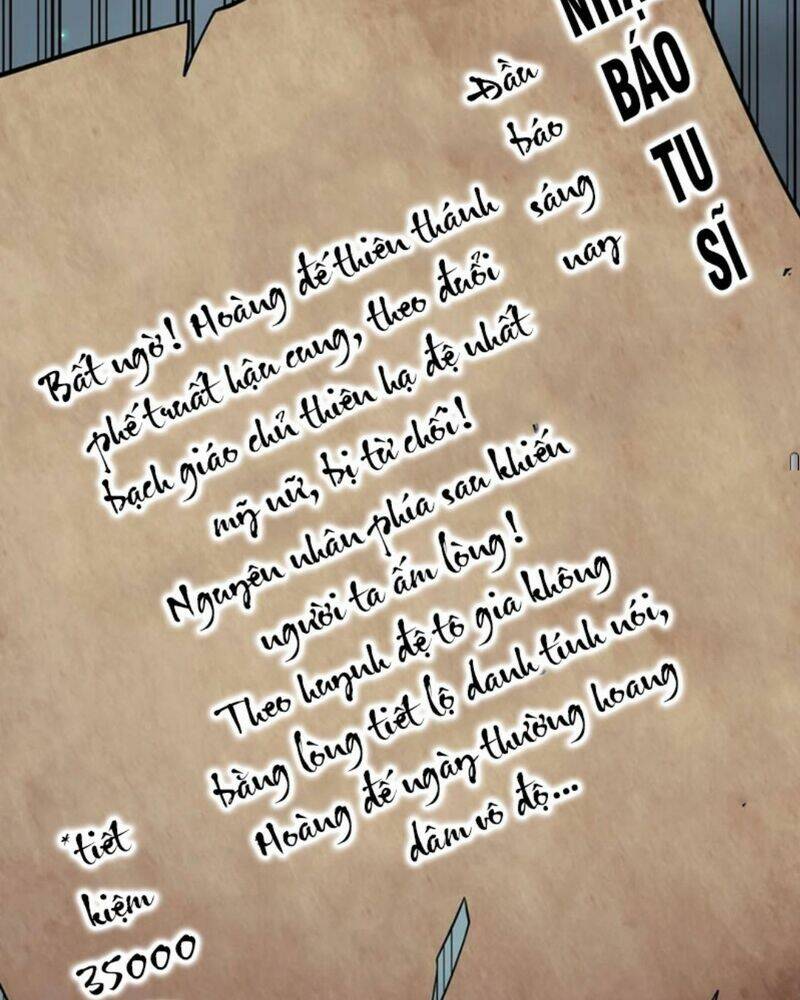 BÁO
TU
SĨ
Đầu
báo
sáng
nay
Bất ngờ! Hoàng đế thiên thánh
phế truất hậu cung, theo đuổi
bạch giáo chủ thiên hạ đệ nhất
mỹ nữ, bị từ chối!
Nguyên nhân phía sau khiến
người ta ấm lòng!
Theo huynh đệ tô gia không
bằng lòng tiết lộ danh tính nói,
Hoàng đế ngày thường hoang
dâm vô độ...
*tiết
kiệm
35000